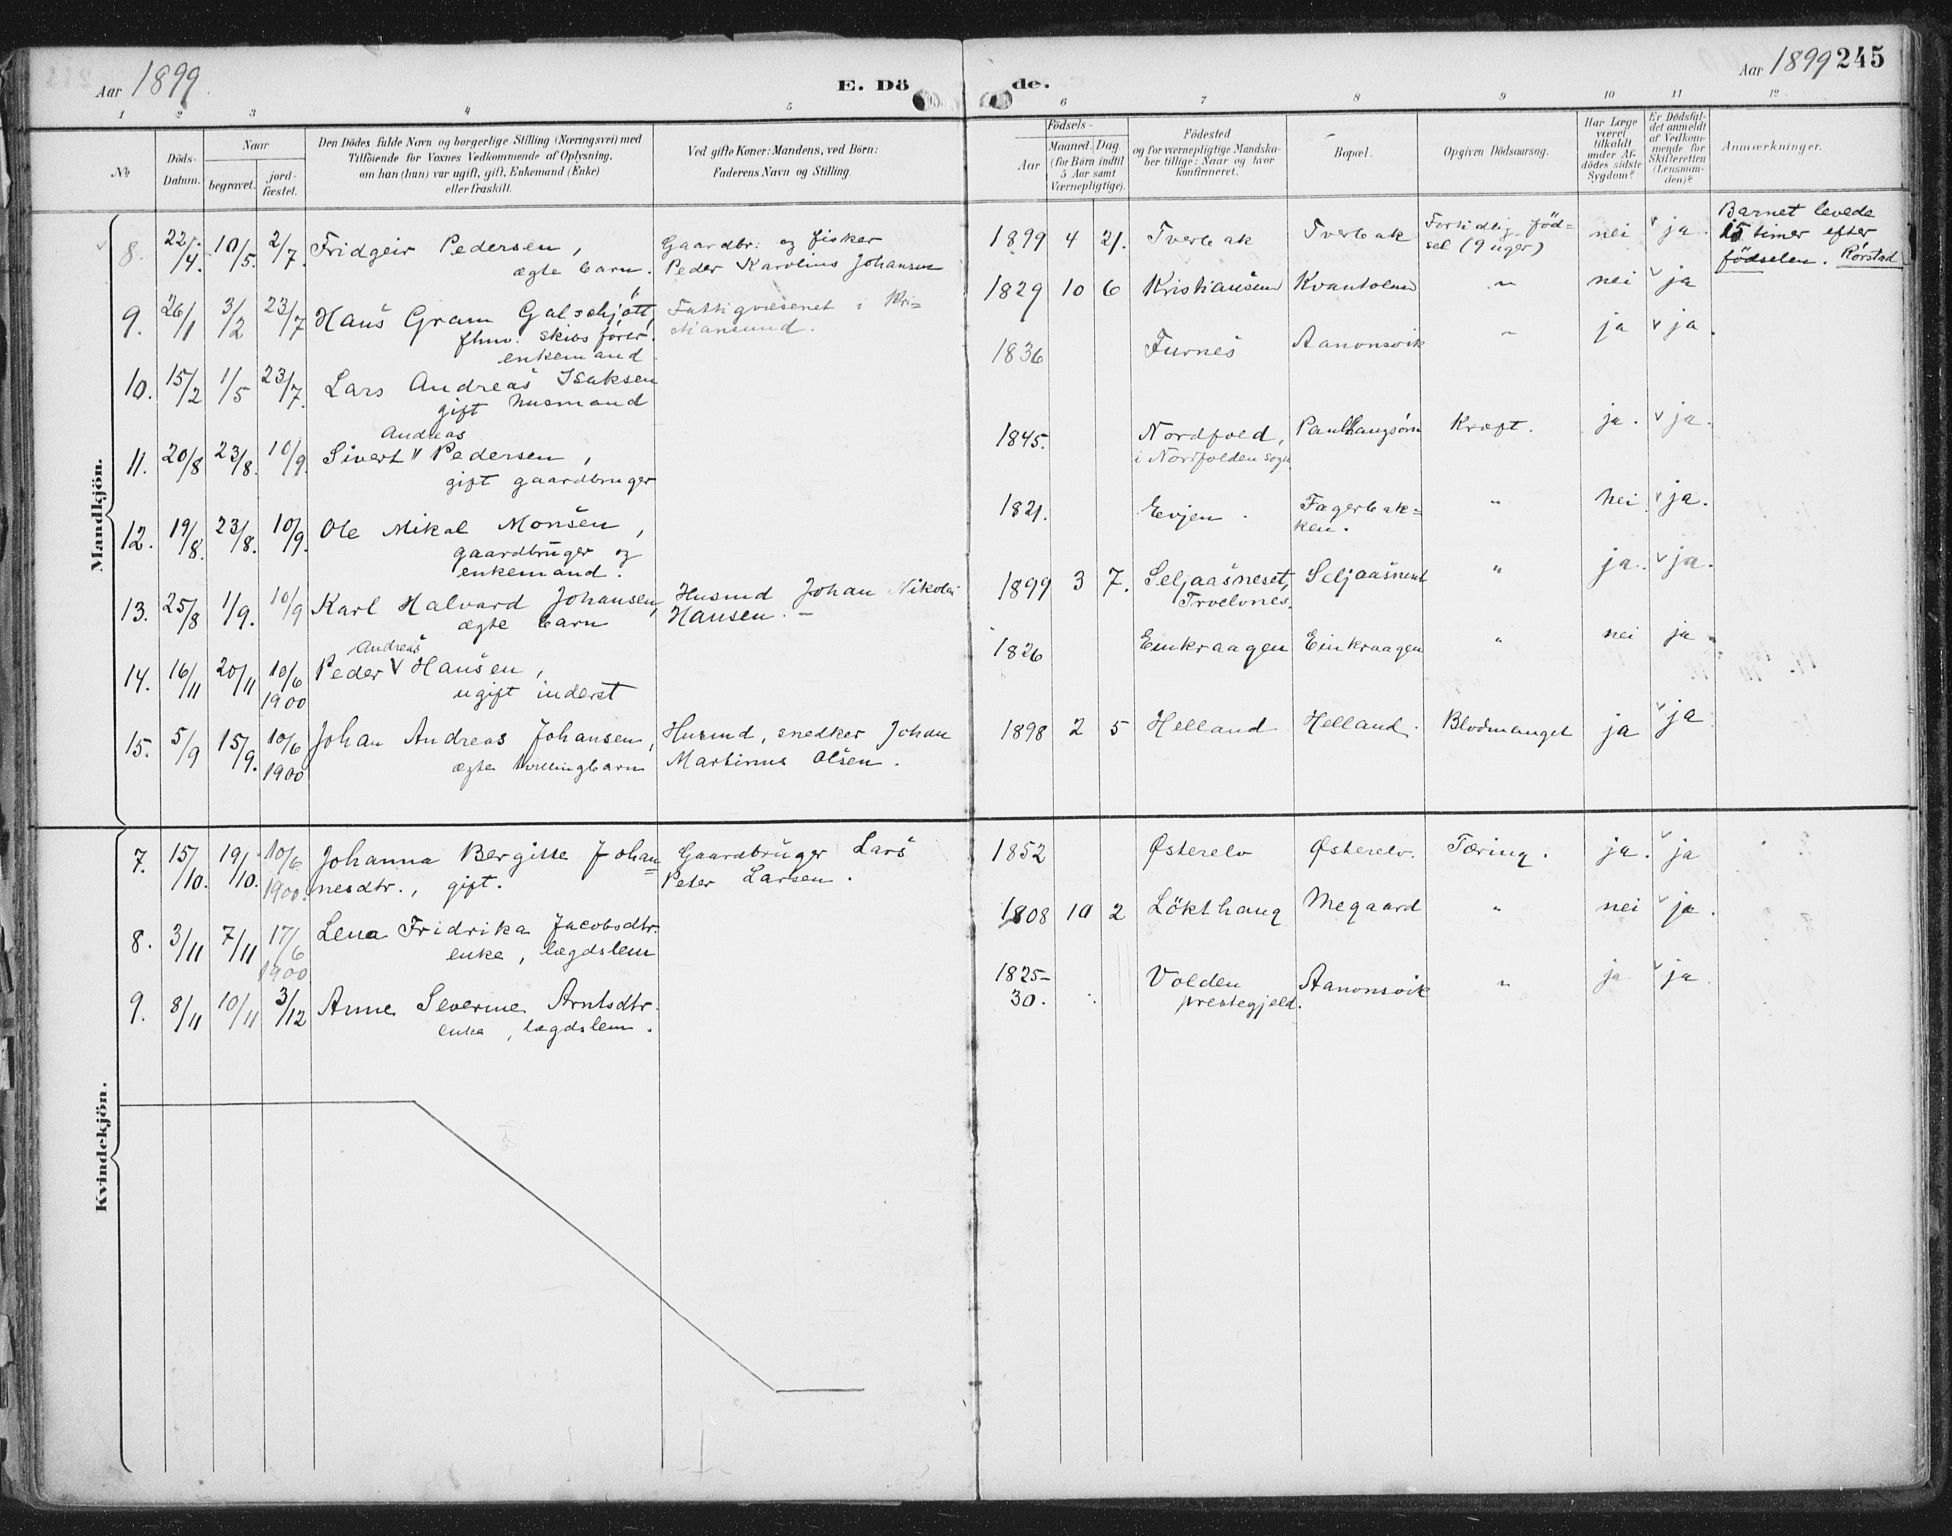 Aar 1899. E. Dö de. Aar 1899 245
1 2 3 4 5 6 7 8 9 10 11 12
No
Döds-Datum.
Naar
begravet.
jord-fæstet.
Den Dödes fulde Navn og borgerlige Stilling (Næringsvei) med
Tilföiende for Voxnes Vedkommende af Oplysning,
om han (hun) var ugift, gift, Enkemand (Enke)
eller fraskilt.
Ved gifte Koner: Mandens, ved Börn:
Faderens Navn og Stilling.
Födsels-
Aar
Maaned. Dag
(for Börn indtil
5 Aar samt
Værnepligtige).
Födested
og for værnepligtige Mandska-
ber tillige: Naar og hvor
konfirmeret.
Bopæl.
Opgiven Dödsaarsag.
Har Læge
været
tilkaldt
under Af-
dödes sidste
Sygdom?
Er Dödsfal-
det anmeldt
af Vedkom-
mende for
Skifteretten
(Lensman-
den)?
Anmærkninger.
Mandkjön.
8. 22/4. 10/5. 2/7. Fridgeir Pedersen, Gaardbr: og fisker 1899 4 21. Tverbak Tverbak Fortidlig fød= nei ja. Barnet levede
ægte barn. Peder Karolius Johansen sel (9 uger) 15 timer efter
fødselen. Rörstad
9. 26/1 3/2 23/7 Hans Gram Galschjött, Fattigvæsenet i Kri= 1829 10 6 Kristiansund Kvanholmen " nei ja
fhnv. skibsfører. stiansund.
enkemand
10. 15/2 1/5 23/7. Lars Andreas Isaksen 1836 Furnes Aanonsvik " ja ja.
gift husmand
11. 20/8 23/8. 10/9. Sivert Andreas Pedersen, 1845. Nordfold, Kraft. ja. ja.
gift gaardbruger i Nordfolden sogn
12. 19/8. 23/8. 10/9. Ole Mikal Monsen, 1821. Evjen. Fagerbak= " nei ja.
gaardbruger og ken.
enkemand.
13. 25/8 1/9. 10/9 Karl Halvard Johansen, Husmd Johan Nikolai 1899 3 7. Seljaasneset, Seljaasneset " ja. ja.
ægte barn Hansen. –
14. 16/11 20/11 10/6 1900 Peder Andreas Hansen, 1826 Einkraagen Einkraagen " nei ja.
ugift inderst
15. 5/9 15/9. 10/6 1900 Johan Andreas Johansen, Husmd, snedker Johan 1898 2 5 Helland Helland. Blodmangel ja ja.
ægte tvillingbarn Martinus Olsen.
Kvindekjön.
7. 15/10. 19/10. 10/6 1900. Johanna Bergitte Johan= Gaardbruger Lars 1852 Østerelv Østerelv. Tæring. ja. ja
nesdtr., gift. Peter Larsen.
8. 3/11 7/11 17/6 1900 Lena Fridrika Jacobsdtr. 1808 10 2 Lökthaug Megaard " nei ja.
enke, lægdslem
9. 8/11 10/11 3/12 Anne Severine Arntsdtr. 1825– Volden Aanonsvik " ja ja.
enke, lægdslem. 30. prestegjeld.